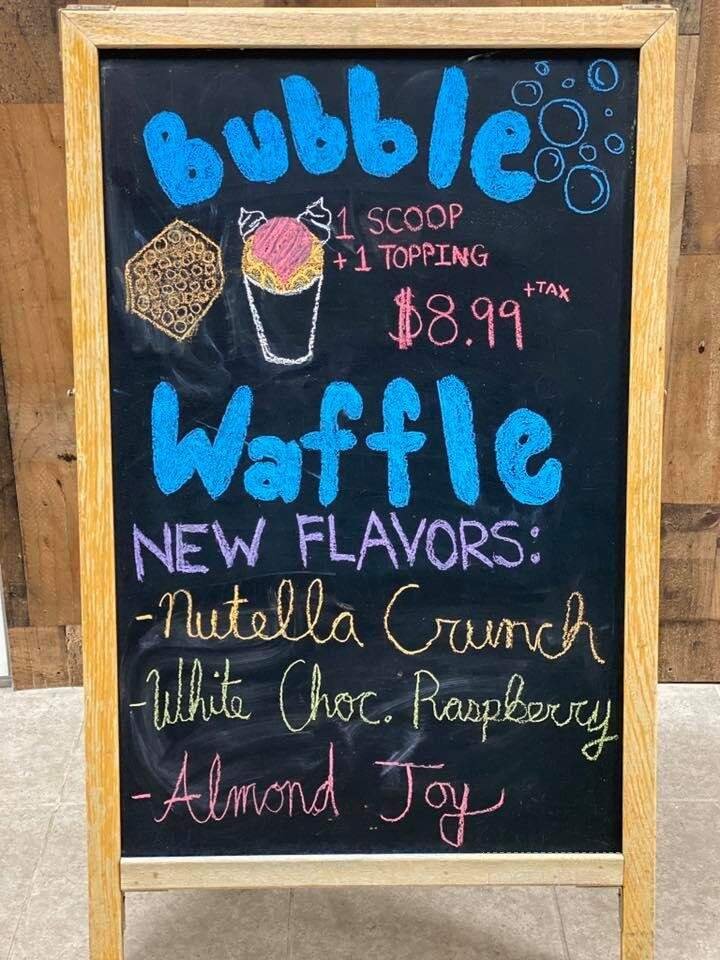 Bubble
1 SCOOP
+ 1 TOPPING
$8.99 +TAX
Waffle
NEW FLAVORS:
-Nutella Crunch
-White Choc. Raspberry
-Almond Joy